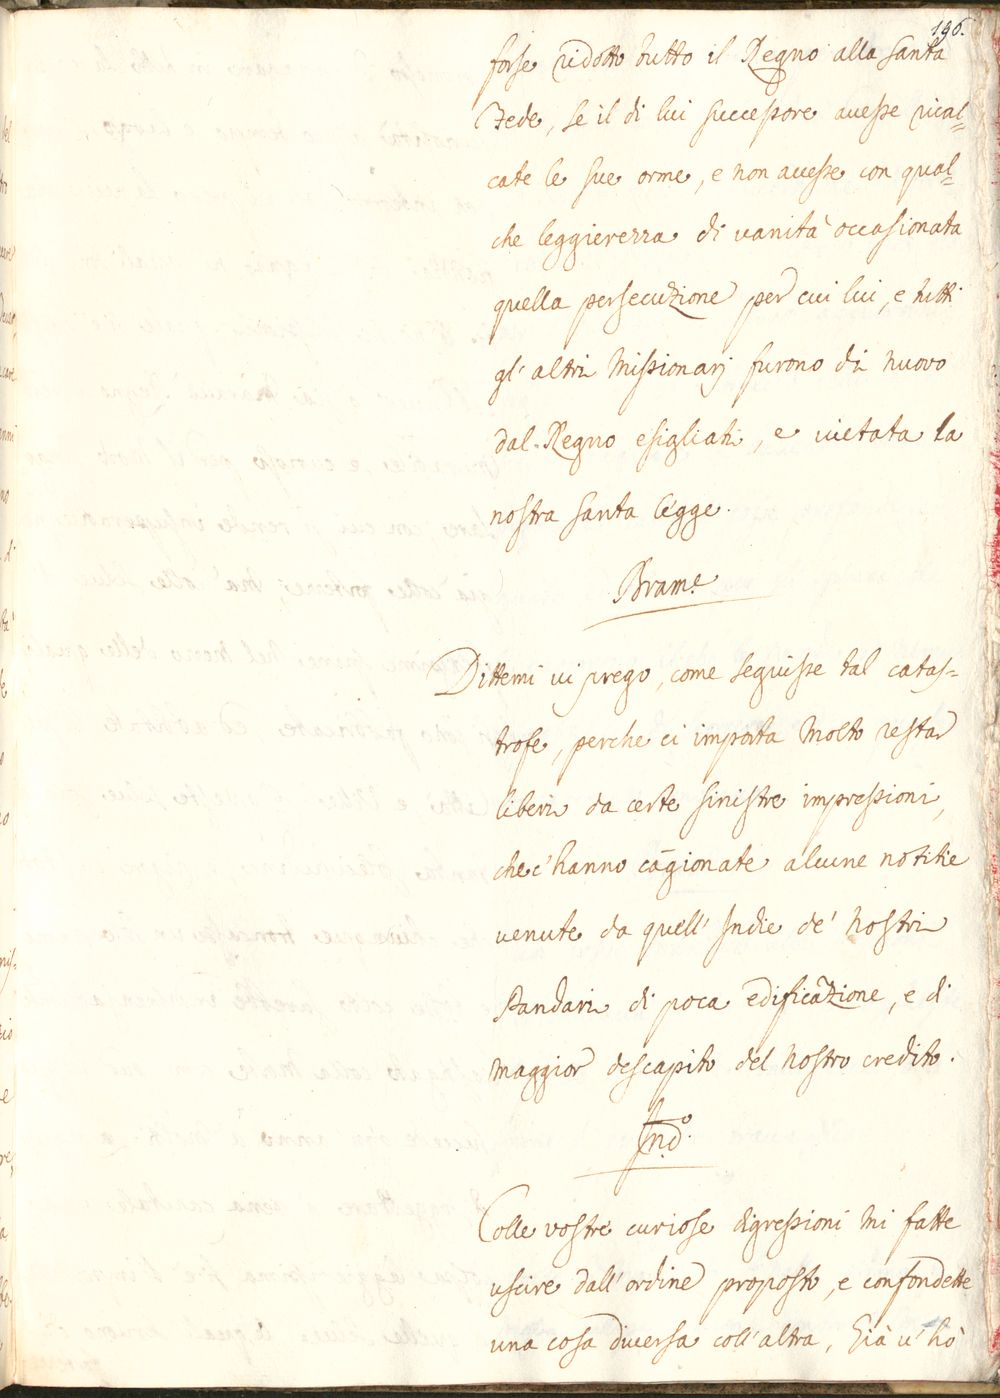 196.
forse ridotto tutto il Regno alla santa
Fede, se il di lui successore avesse rical=
cate le sue orme, e non avesse con qual=
che leggierezza di vanità occasionata
quella persecuzione per cui lui, e tutti
gl' altri Missionarj furono di nuovo
dal Regno esigliati, e vietata la
nostra santa legge.
Brame
Dittemi vi prego, come seguisse tal catas=
trofe, perche ci importa molto restar
liberi da certe sinistre impressioni,
che c'hanno cagionate alcune notitie
venute da quell' Indie de' nostri
Pandari di poca edificazione, e di
maggior descapito del nostro credito.
Ind.o
Colle vostre curiose digressioni mi fatte
uscire dall' ordine proposto, e confondette
una cosa diversa coll' altra, Già v' hò